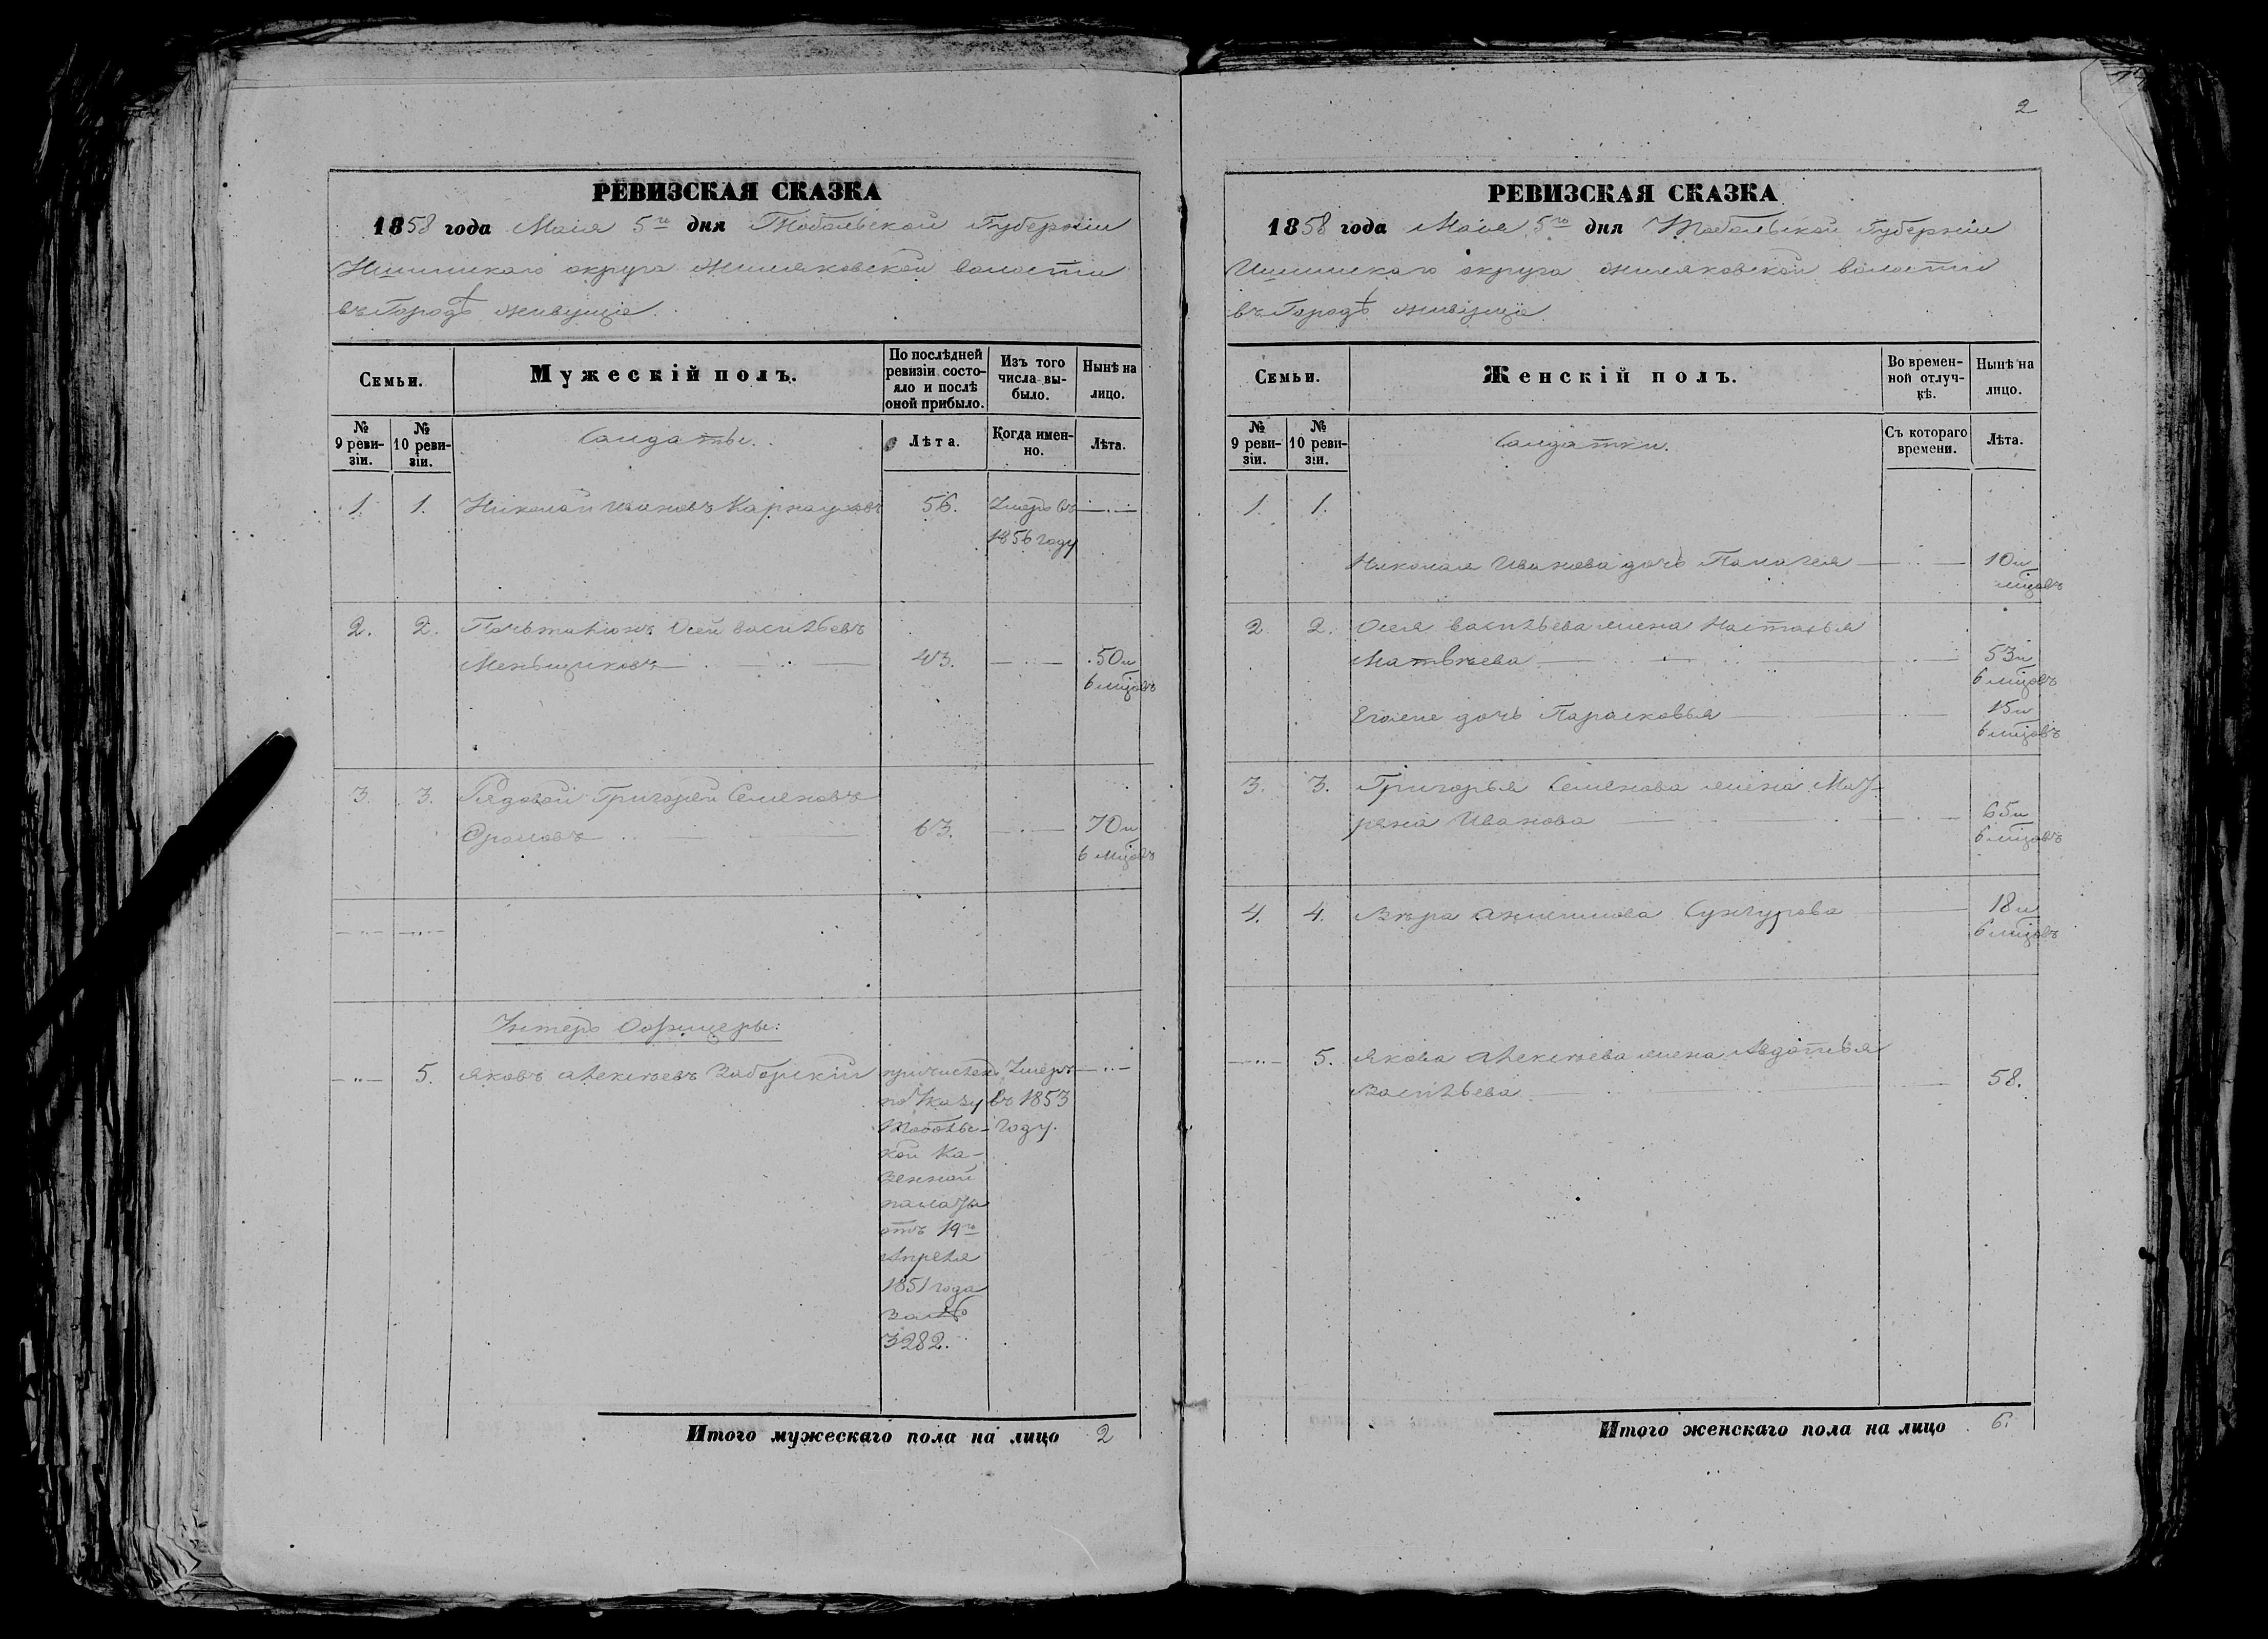 2
РЕВИЗСКАЯ СКАЗКА
1858 года Маія 5го дня Тобольской Губерніи
Ишимскаго округа Жиляковской волости
въ Городѣ живущіе.
Семьи.
Мужескій полъ.
По послѣдней ревизіи состояло и послѣ оной прибыло.
Изъ того числа выбыло.
Нынѣ на лицо.
№ 9 ревизіи.
№ 10 ревизіи.
Солдаты.
Лѣта.
Когда именно.
Лѣта.
1. 1. Николай Ивановъ Карнауховъ 56. Умеръ въ —..—
1856 году
2. 2. Осей Васильевъ
Меньщиковъ 43. —..— 50 и
6 мцовъ
3. 3. Рядовой Григорей Семеновъ
63. —..— 70 и
6 мцовъ
—..— —..—
Унтеръ Офицеры:
—..— 5. Яковъ Алексѣевъ Заборскій причисленъ Умеръ —..—
по Указу въ 1853
Тоболь- году.
ской Ка-
зенной
палаты
отъ 19го
Апреля
1851 года
за №
3282.
Итого мужескаго пола на лицо 2
РЕВИЗСКАЯ СКАЗКА
1858 года Маія 5го дня Тобольской Губерніи
Ишимскаго округа Жиляковской волости
въ Городѣ живущіе
Семьи.
Женскій полъ.
Во временной отлучкѣ.
Нынѣ на лицо.
№ 9 ревизіи.
№ 10 ревизіи.
Солдатки.
Съ котораго времени.
Лѣта.
1. 1.
Николая Иванова дочь Палагея 10 и
мцовъ
2. 2. Осея Васильева жена Настасья
Матвѣева 53 и
6 мцовъ
Егоже дочь Парасковья 15 и
6 мцовъ
3. 3. Григорья Семенова жена Мат-
рена Иванова 65 и
6 мцовъ
4. 4. Вѣра Сунгурова 18 и
6 мцовъ
—..— 5. Якова Алексѣева жена Авдотья
Васильева 58.
Итого женскаго пола на лицо 6.